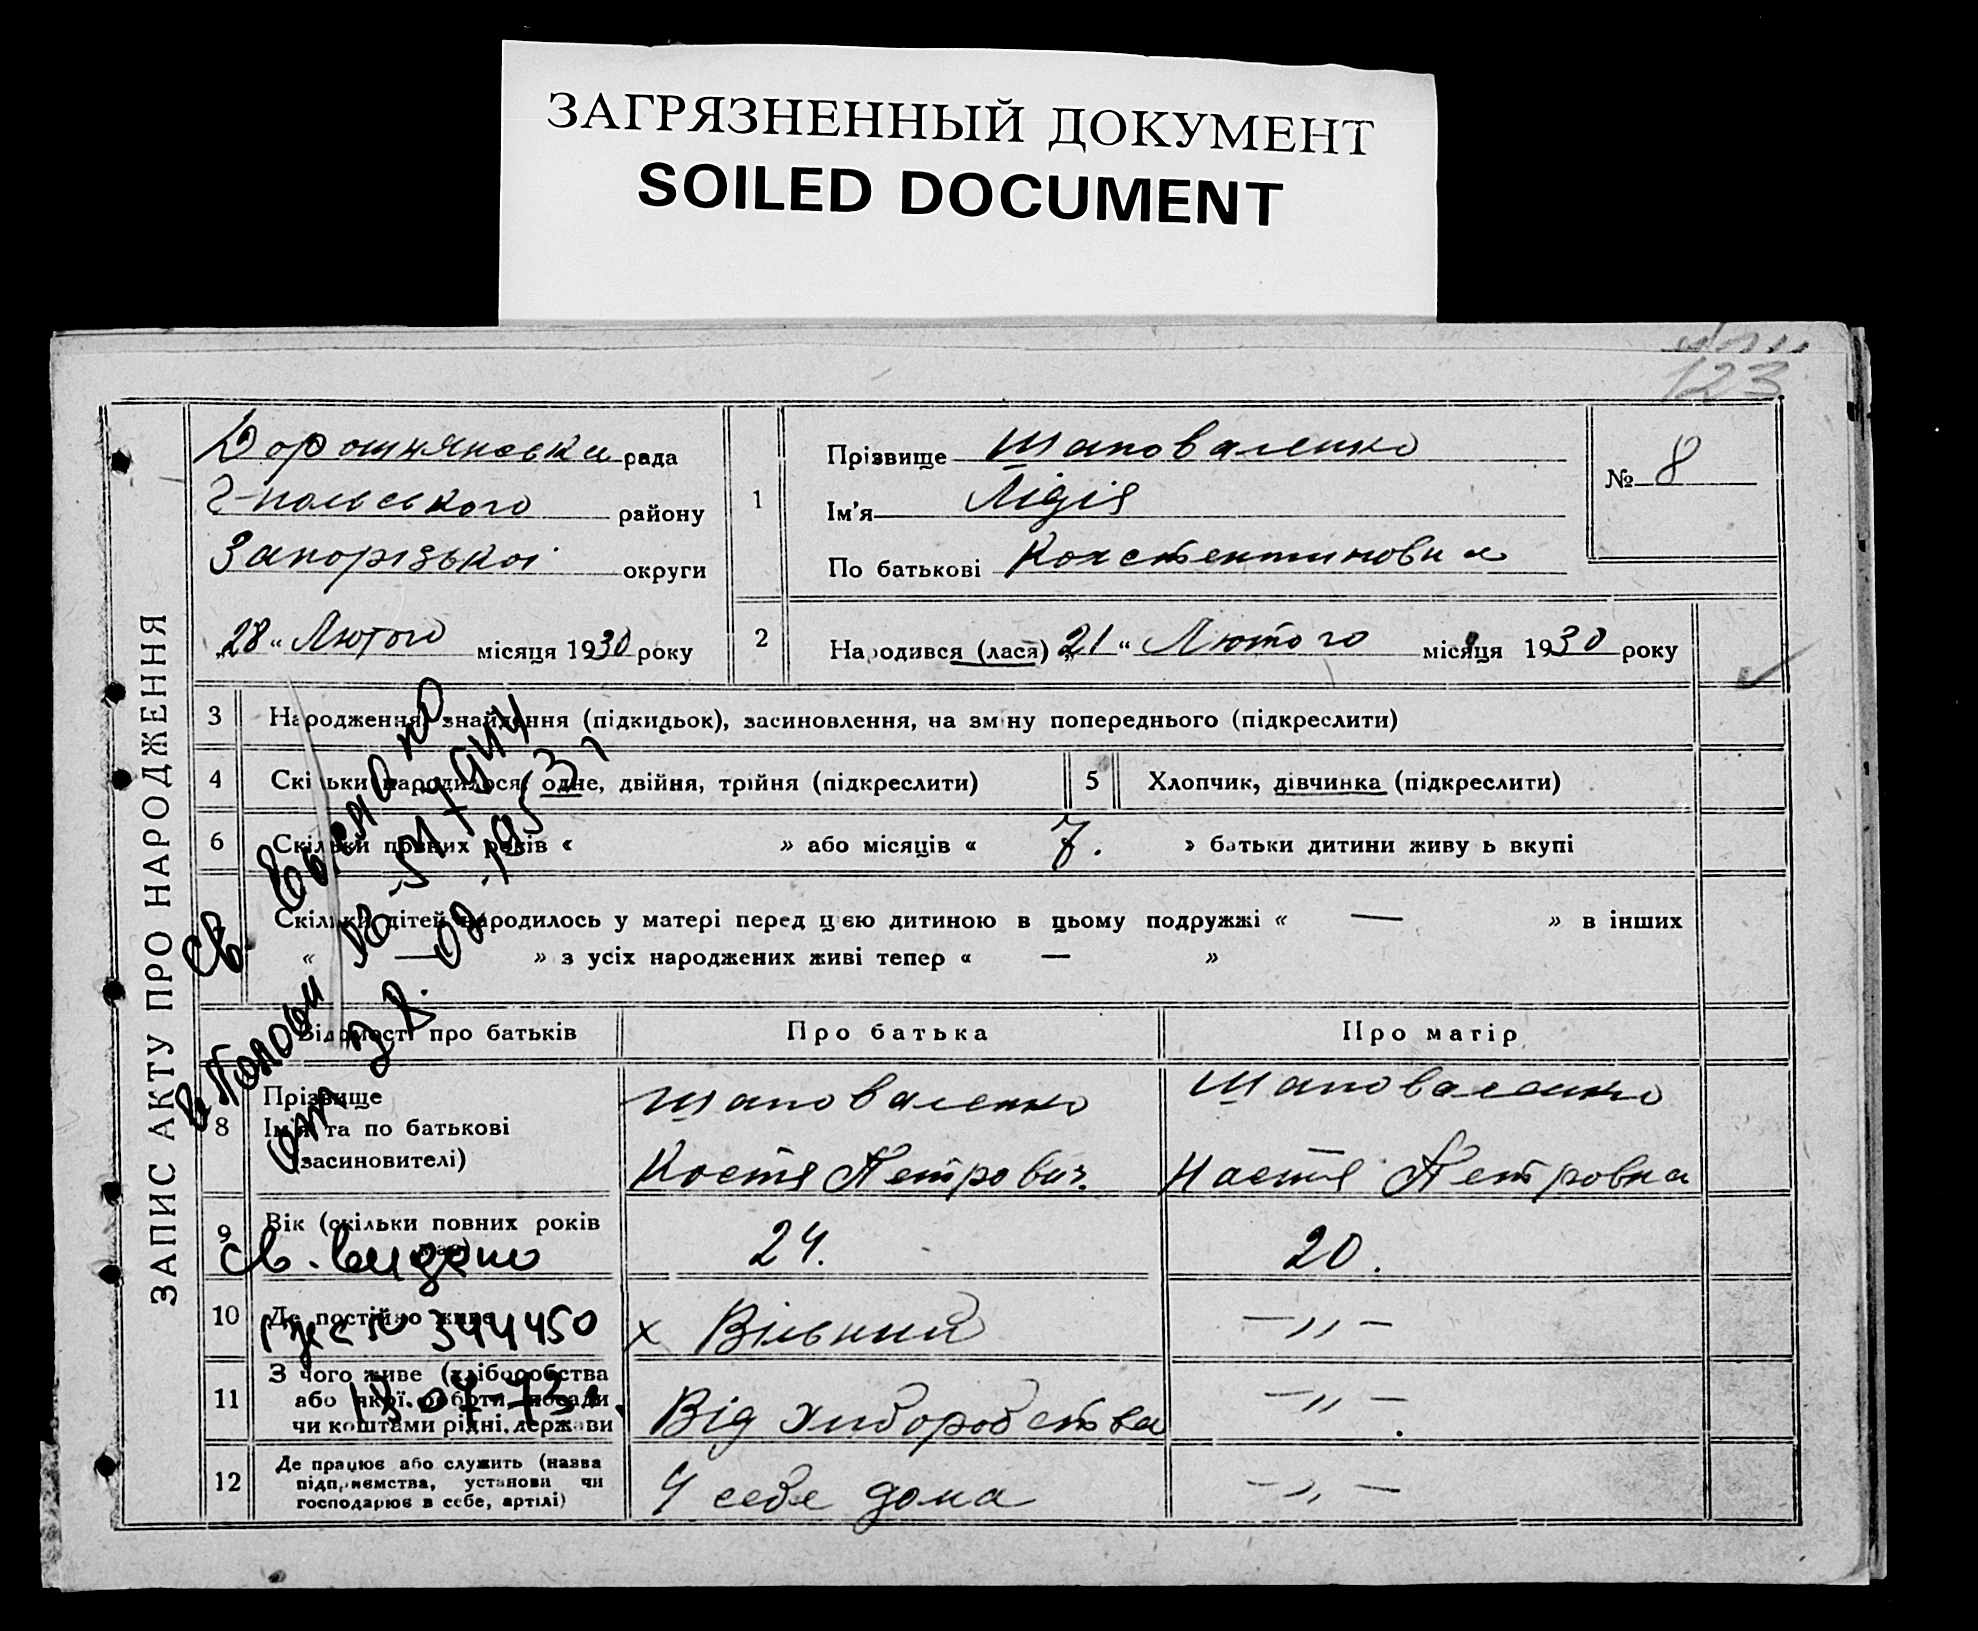 ЗАГРЯЗНЕННЫЙ ДОКУМЕНТ
SOILED DOCUMENT
123
ЗАПИС АКТУ ПРО НАРОДЖЕННЯ
Дорошнянська рада
Г-польського району
Запорізької округи
„28“ Лютого місяця 1930 року
1
Прізвище Шаповаленко
Ім'я Лідія
По батькові Констентиновна
№ 8
2
Народився (лася) „21“ Лютого місяця 1930 року
3 Народження, знайдення (підкидьок), засиновлення, на зміну попереднього (підкреслити)
4 Скільки народилося: одне, двійня, трійня (підкреслити)
5 Хлопчик, дівчинка (підкреслити)
6 Скільки повних років « » або місяців « 7. » батьки дитини живуть вкупі
Скільки дітей народилось у матері перед цією дитиною в цьому подружжі « — » в інших
« — » з усіх народжених живі тепер « — »
Відомості про батьків Про батька Про матір
8 Прізвище
Ім'я та по батькові
(засиновителі)
Шаповаленко
Костя Петрович.
Шаповаленко
Настя Петровна
9 Вік (скільки повних років має) 24. 20.
10 Де постійно живе х Вільний —„—
11 З чого живе (хліборобства
або якої роботи, посади
чи коштами рідні, держави
Від хліборобства —„—.
12 Де працює або служить (назва
підприємства, установи чи
господарює в себе, артілі)
У себе дома —„—
Св.
02. 1953
св. видано
№ 344450
18.04-73г.